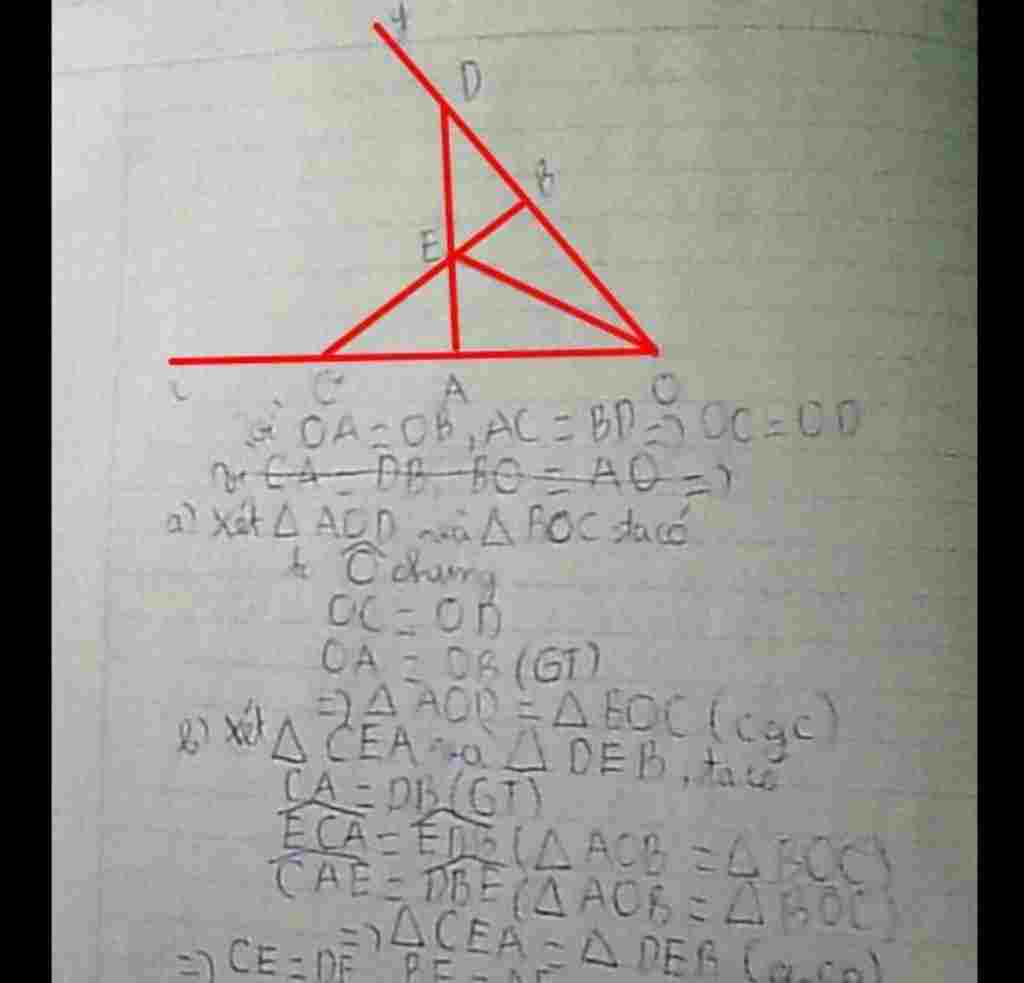 y
D
B
E
C A O
Vì OA = OB, AC = BD => OC = OD
CA = DB, BO = AO =>
a) Xét Δ AOD và Δ BOC ta có
Ô chung
OC = OD
OA = OB (GT)
=> Δ AOD = Δ BOC (cgc)
b) Xét Δ CEA và Δ DEB, ta có
CA = DB (GT)
ECA = EDB (Δ AOB = Δ BOC)
CAE = DBE (Δ AOB = Δ BOC)
=> Δ CEA = Δ DEB (g.c.g)
=> CE = DE